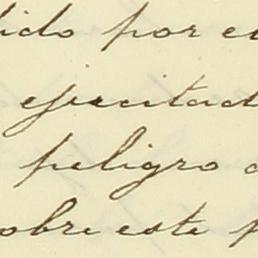 dido por el
ejercitad
peligro d
obre este p